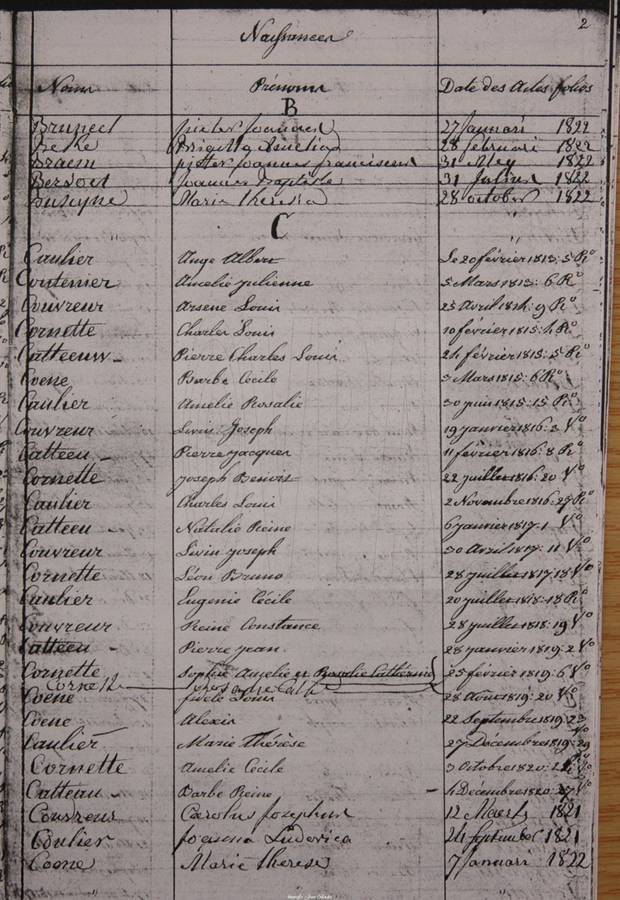 2
Naissances
Noms Prénoms Date des Actes folios
B
Bruneel pieter joannes 27 Januari 1822
Brigitta Amelia 28 februari 1822
Braem pitter joannes franciscus 31 Mey 1822
Joannes Baptiste 31 Julius 1822
Maria theresia 28 october 1822
C
Caulier Ange Albert Le 20 février 1813: 5 Ro
Contenier Amelie julienne 5 Mars 1813: 6 Ro
Couvreur Arsene Louis 25 Avril 1814: 9 Ro
Cornette Charles Louis 10 février 1815: 4 Ro
Catteeuw Pierre Charles Louis 24 février 1815: 5 Ro
Coene Barbe Cecile 3 Mars 1815: 6 Ro
Caulier Amelie Rosalie 30 juin 1815: 15 Ro
Couvreur Louis Joseph 19 janvier 1816: 3 Vo
Catteeu Pierre jacques 11 février 1816: 8 Ro
Cornette joseph Benoit 22 juillet 1816: 20 Vo
Caulier Charles Louis 2 Novembre 1816: 27 Ro
Catteeu Natalie Reine 6 janvier 1817: 1 Vo
Couvreur Livin joseph 30 Avril 1817: 11 Vo
Cornette Léon Bruno 28 juillet 1817: 18 Vo
Caulier Eugenie Cécile 20 juillet 1818: 18 Ro
Couvreur Reine Constance 28 juillet 1818: 19 Vo
Catteeu Pierre jean 28 janvier 1819: 2 Vo
Cornette Sophie Amelie et Rosalie Catherine 25 février 1819: 6 Vo
Cornette
Coene fidele Louis 28 Août 1819: 20 Vo
Coene Alexis 22 Septembre 1819: 23 Vo
Caulier Marie Thérèse 27 Décembre 1819: 29 Vo
Cornette Amelie Cécile 3 Octobre 1820:
Catteau Barbe Reine 4 Décembre 1820: 27 Vo
Couvreur Carolus Josephus 12 Maert 1821
Coulier joanna Ludovica 24 September 1821
Coene Marie therese 7 Januari 1822